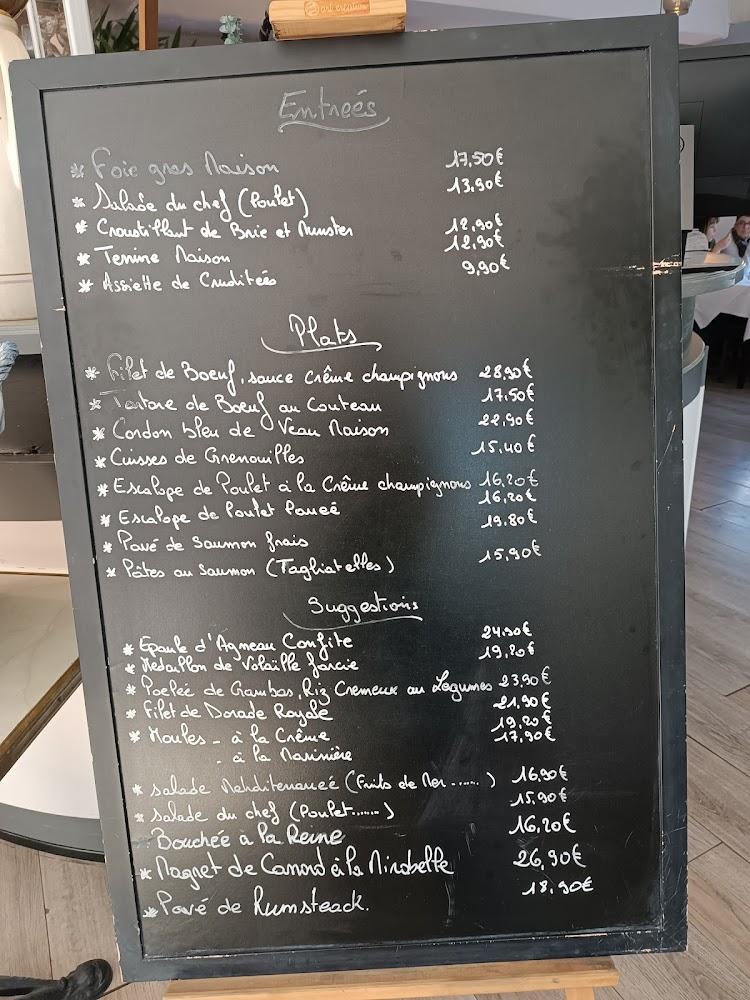 art creation
Entreés
* Foie gras Maison 17,50€
* Salade du chef (Poulet) 13,90€
* Croustillant de Brie et Munster 12,90€
* Terrine Maison 12,90€
* Assiette de Cruditeés 9,90€
Plats
* Filet de Boeuf, sauce crême champignons 28,90€
* Tartare de Boeuf au Couteau 17,50€
* Cordon bleu de Veau Maison 22,90€
* Cuisses de Grenouilles 15,40€
* Escalope de Poulet à la Crême champignons 16,20€
* Escalope de Poulet Paneé 16,20€
* Pavé de Saumon frais 19,80€
* Pâtes au Saumon (Tagliatelles) 15,90€
Suggestions
* Epaule d'Agneau Confite 24,90€
* Medaillon de Volaille farcie 19,20€
* Poeleé de Gambas, Riz Cremeux au Legumes 23,90€
* Filet de Dorade Royale 21,90€
* Moules - à la Crême 19,20€
- à la Marinière 17,90€
* Salade Mehditeraneé (Fruits de Mer ......) 16,90€
* Salade du chef (Poulet......) 15,90€
* Bouchée à la Reine 16,20€
* Magret de Canard à la Mirabelle 26,90€
* Pavé de Rumsteack. 18,90€